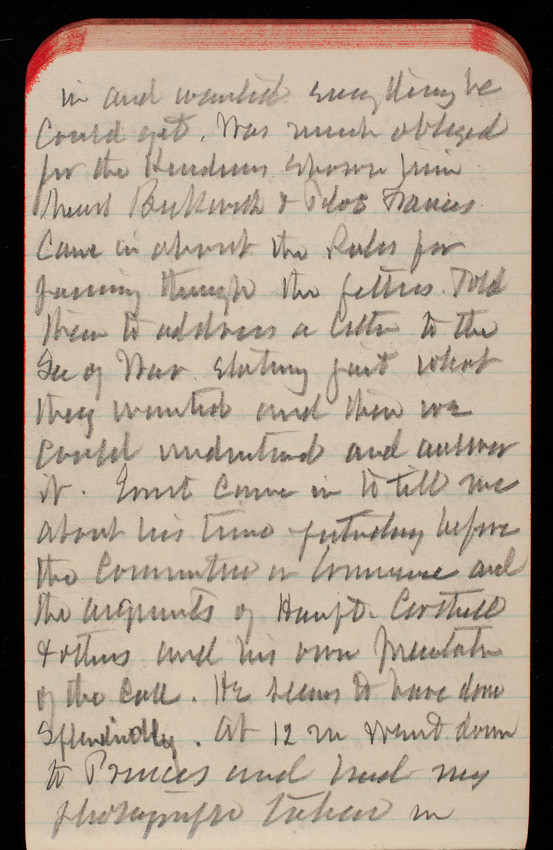 in and wanted everything he
could get. Was much obliged
for the
Beckwith & Pilot
Came in about the Rules for
passing through the jetties. Told
them to address a letter to the
Sec of War stating just what
they wanted and then we
could understand and answer
it. Ernst came in to tell me
about his time yesterday before
the Committee on Commerce and
the arguments of Haupt. Corthell
& others and his own presentatn
of the case. He seems to have done
splendidly. At 12 m went down
to Princes and had my
photograph taken in